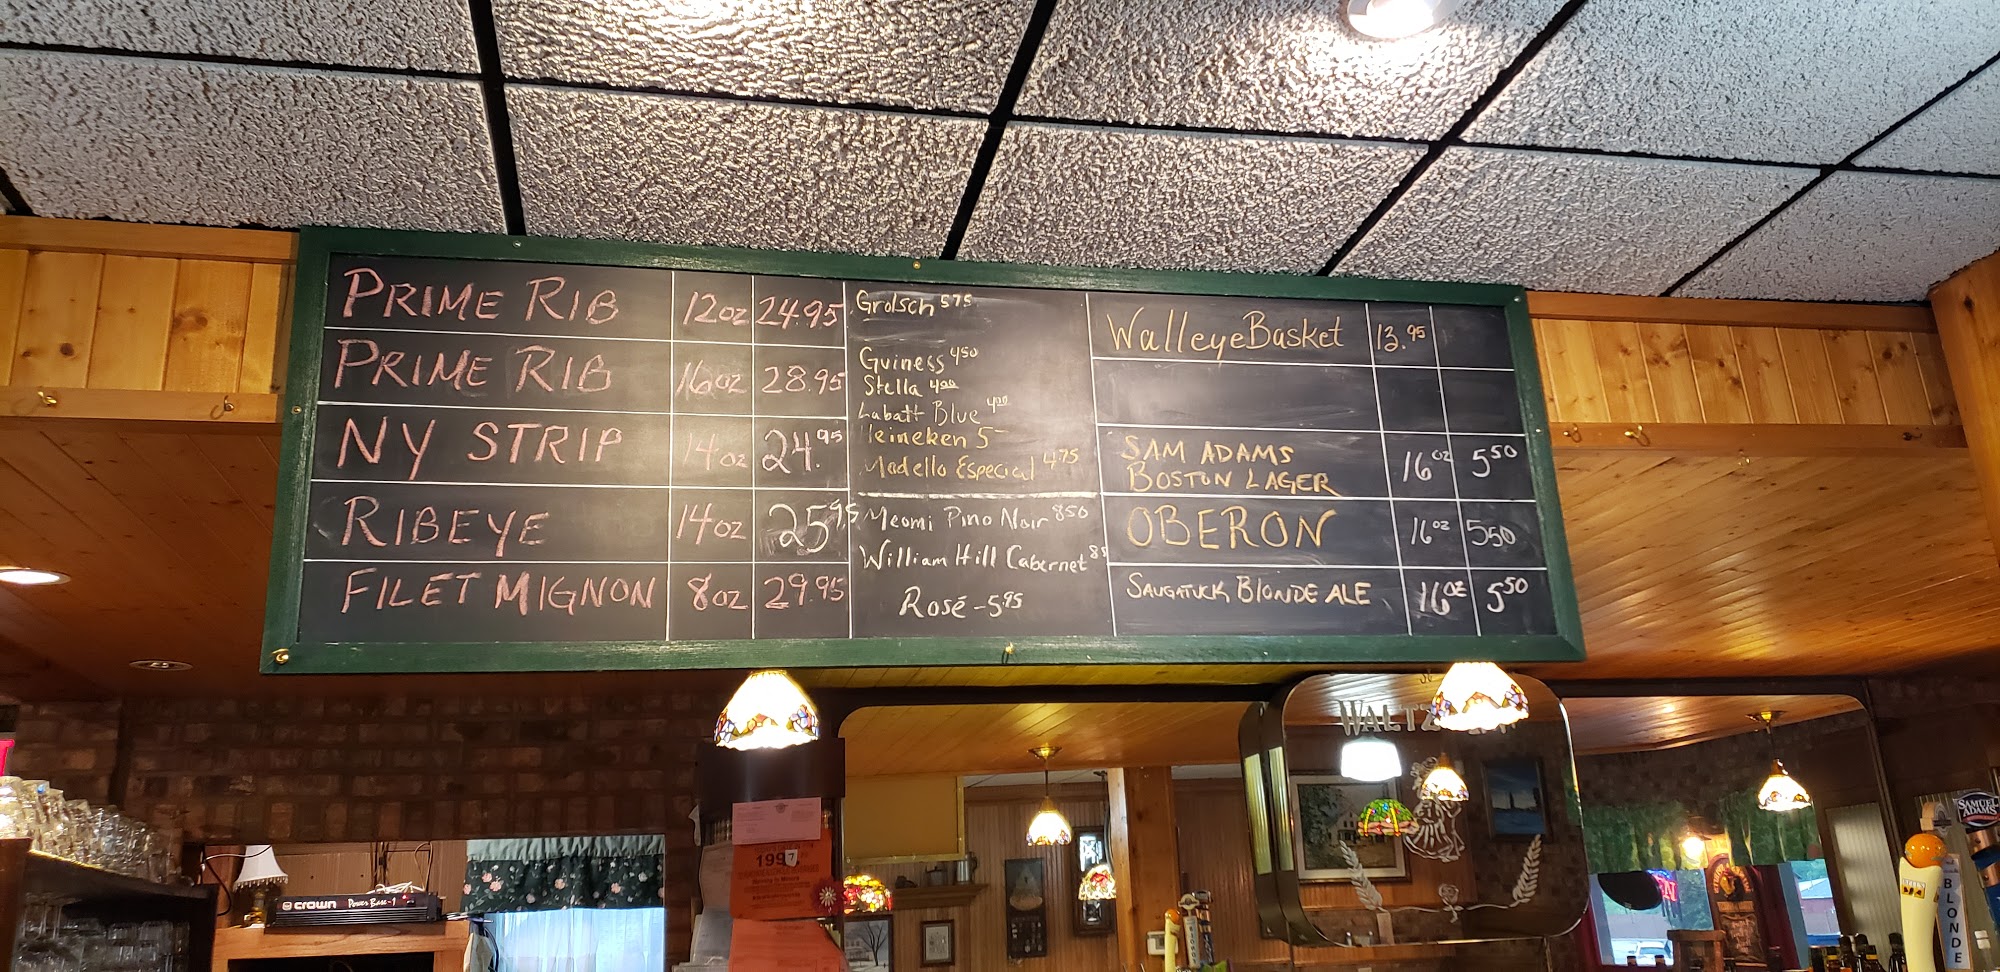 PRIME RIB 12oz 24.95
PRIME RIB 16oz 28.95
NY STRIP 14oz 24.95
RIBEYE 14oz 25.95
FILET MIGNON 8oz 29.95
Grolsch 575
Guiness 450
Stella 400
Labatt Blue 400
Heineken 5-
Modello Especial 475
Meomi Pino Noir 850
William Hill Cabernet
Rosé - 5.95
Walleye Basket 13.95
SAM ADAMS
BOSTON LAGER 16oz 550
OBERON 16oz 550
SAUGATUCK BLONDE ALE 16oz 550
WALTZ
crown Power Base-1
1997
SAMUEL
ADAMS
BLONDE